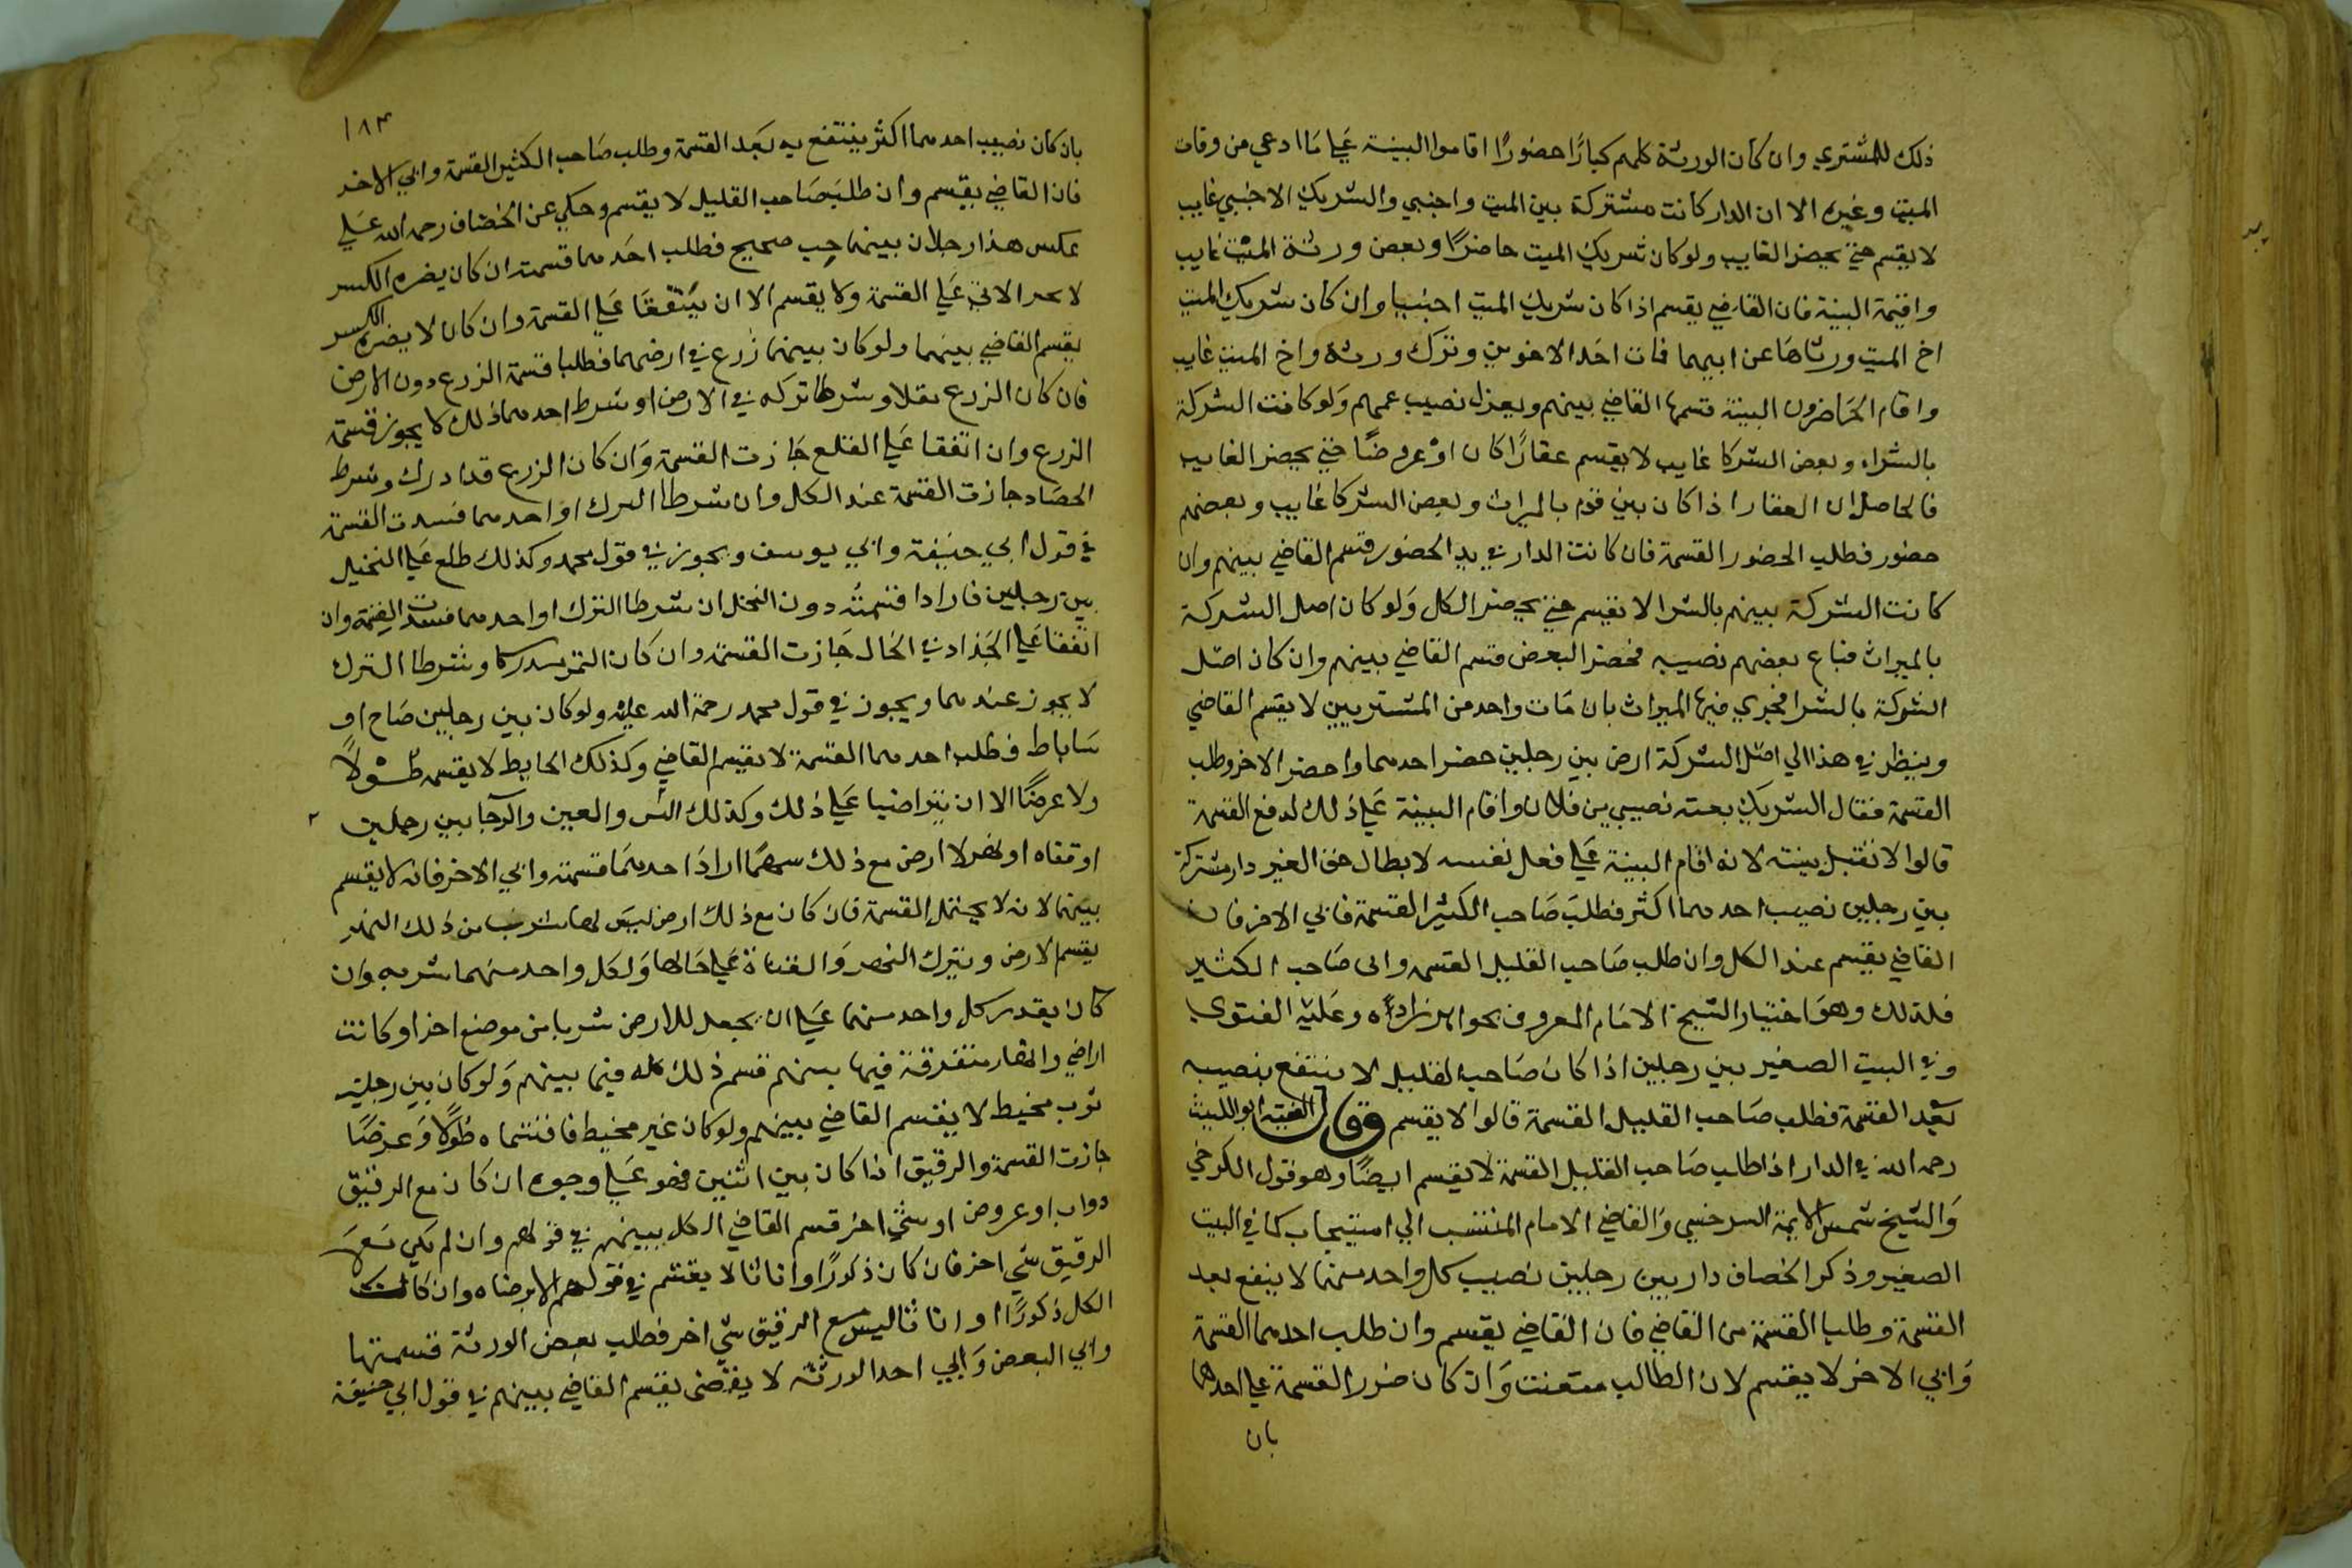 ذلك للمشتري وان كان الورثة كلهم كبارا حضورا اقاموا البينة علي ما ادعي من وفات
الميت وغيره الا ان الدار كانت مشتركة بين الميت واجنبي والشريك الاجنبي غايب
لا يقسم حتي يحضر الغايب ولو كان شريك الميت حاضرا وبعض ورثة الميت غايب
واقيمة البينة فان القاضي يقسم اذا كان شريك الميت اجنبيا وان كان شريك الميت
اخ الميت ورثاها عن ابيهما فمات احد الاخوين وترك ورثة واخ الميت غايب
واقام الحاضرون البينة قسمها القاضي بينهم ويعزل نصيب عمهم ولو كانت الشركة
بالشراء وبعض الشركا غايب لا يقسم عقارا كان او عروضا حتي يحضر الغايب
فالحاصل ان العقار اذا كان بين قوم بالميراث وبعض الشركا غايب وبعضهم
حضور فطلب الحضور القسمة فان كانت الدار في يد الحضور قسم القاضي بينهم وان
كانت الشركة بينهم بالشرا لا يقسم حتي يحضر الكل ولو كان اصل الشركة
بالميراث فباع بعضهم نصيبه فحضر البعض قسم القاضي بينهم وان كان اصل
الشركة بالشرا فجري فيها الميراث بان مات واحد من المشتريين لا يقسم القاضي
وينظر في هذا الي اصل الشركة ارض بين رجلين حضر احدهما واحضر الاخر وطلب
القسمة فقال الشريك بعته نصيبي من فلان واقام البينة علي ذلك لدفع القسمة
قالوا لا تقبل بينته لانه اقام البينة علي فعل نفسه لابطال حق الغير دار مشتركة
بين رجلين نصيب احدهما اكثر فطلب صاحب الكثير القسمة فابي الاخر فان
القاضي يقسم عند الكل وان طلب صاحب القليل القسمه وابى صاحب الكثير
فلذلك وهو اختيار الشيخ الامام المعروف بخواهرزاده وعليه الفتوي
وفي البيت الصغير بين رجلين اذا كان صاحب القليل لا ينتفع بنصيبه
بعد القسمة فطلب صاحب القليل القسمة قالوا لا يقسم وقال الفقيه ابو الليث
رحمه الله في الدار اذا طلب صاحب القليل القسمة لا يقسم ايضا وهو قول الكرخي
والشيخ شمس الايمة السرخسي والقاضي الامام المنتسب الي اسبيجاب كما في البيت
الصغير وذكر الخصاف دار بين رجلين نصيب كل واحد منهما لا ينفع بعد
القسمة وطلبا القسمة من القاضي فان القاضي يقسم وان طلب احدهما القسمة
وابي الاخر لا يقسم لان الطالب متعنت وان كان ضرر القسمة علي احدهما
بان
١٨٣
بان كان نصيب احدهما اكثر ينتفع به بعد القسمة وطلب صاحب الكثير القسمة وابي الاخر
فان القاضي يقسم وان طلب صاحب القليل لا يقسم وحكي عن الخصاف رحمه الله علي
عكس هذا رجلان بينهما حب صحيح فطلب احدهما قسمته ان كان يضره الكسر
لا الابي علي القسمة ولا يقسم الا ان يتفقا علي القسمة وان كان لا يضره الكسر
يقسم القاضي بينهما ولو كان بينهما زرع في ارضهما فطلبا قسمة الزرع دون الارض
فان كان الزرع بقلا وشرطا تركه في الارض او شرط احدهما ذلك لا يجوز قسمة
الزرع وان اتفقا علي القلع جازت القسمة وان كان الزرع قد ادرك وشرط
الحصاد جازت القسمة عند الكل وان شرطا الترك او احدهما فسدت القسمة
في قول ابي حنيفة وابي يوسف ويجوز في قول محمد وكذلك طلع علي النخيل
بين رجلين فارادا قسمته دون النخل ان شرطا الترك او احدهما فسدت القسمة وان
اتفقا علي الجذاد في الحال جازت القسمة وان كان التمر مدركا وشرطا الترك
لا يجوز عندهما ويجوز في قول محمد رحمة الله عليه ولو كان بين رجلين صاح او
ساباط فطلب احدهما القسمة لا يقسم القاضي وكذلك الحايط لا يقسمه طولا
ولا عرضا الا ان يتراضيا علي ذلك وكذلك البير والعين والرحا بين رجلين
او قناه او نهر لا ارض مع ذلك سهما اراد احدهما قسمته وابي الاخر فانه لا يقسم
بينهما لانه لا يحتمل القسمة فان كان مع ذلك ارض ليس لها شرب من ذلك النهر
يقسم الارض ويترك النهر والقناة علي حالها ولكل واحد منهما شربه وان
كان يقدر كل واحد منهما علي ان يجعل للارض شربا من موضع اخر او كانت
اراضي وانهار متفرقة فيها بينهم قسم ذلك كله فيما بينهم ولو كان بين رجلين
ثوب مخيط لا يقسم القاضي بينهم ولو كان غير مخيط فاقتسماه طولا وعرضا
جازت القسمة والرقيق اذا كان بين اثنين فهو علي وجوه ان كان مع الرقيق
دواب او عروض او شئ اخر قسم القاضي الكل بينهم في قولهم وان لم يكن مع
الرقيق شي اخر فان كان ذكورا واناثا لا يقسم في قولهم الا برضاه وان كان
الكل ذكورا او اناثا ليس مع الرقيق شي اخر فطلب بعض الورثة قسمتها
وابي البعض وابي احد الورثه لا يقضى يقسم القاضي بينهم في قول ابي حنيفة